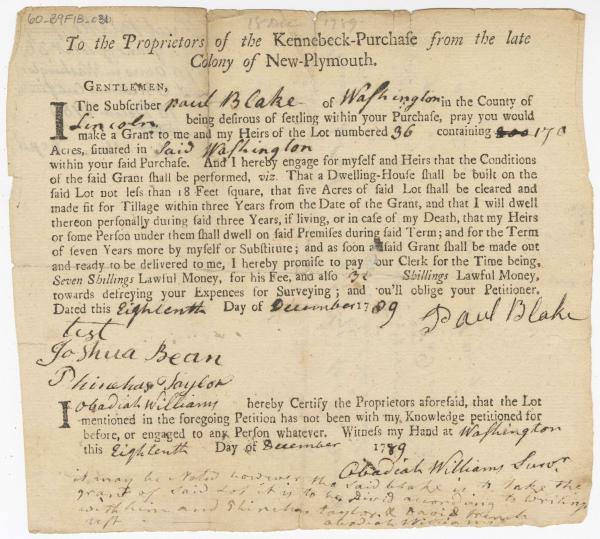 60-B9F18-031
18 Dec 1789
To the Proprietors of the Kennebeck-Purchaſe from the late
Colony of New-Plymouth.
GENTLEMEN,
The Subſcriber Paul Blake of Waſhington in the County of
Lincoln being deſirous of ſettling within your Purchaſe, pray you would
make a Grant to me and my Heirs of the Lot numbered 36 containing 170
Acres, ſituated in Said Waſhington
within your ſaid Purchaſe. And I hereby engage for myſelf and Heirs that the Conditions
of the ſaid Grant ſhall be performed, viz. That a Dwelling-Houſe ſhall be built on the
ſaid Lot not leſs than 18 Feet ſquare, that five Acres of ſaid Lot ſhall be cleared and
made fit for Tillage within three Years from the Date of the Grant, and that I will dwell
thereon perſonally during ſaid three Years, if living, or in caſe of my Death, that my Heirs
or ſome Perſon under them ſhall dwell on ſaid Premiſes during ſaid Term; and for the Term
of ſeven Years more by myſelf or Subſtitute; and as ſoon ſaid Grant ſhall be made out
and ready to be delivered to me, I hereby promiſe to pay our Clerk for the Time being,
Seven Shillings Lawful Money, for his Fee, and alſo Shillings Lawful Money,
towards defreying your Expences for Surveying; and ou'll oblige your Petitioner.
Dated this Eighteenth Day of December 1789
Paul Blake
test
Joshua Bean
Phinehas Taylor
Obadiah Williams
I hereby Certify the Proprietors aforeſaid, that the Lot
mentioned in the foregoing Petition has not been with my Knowledge petitioned for
before, or engaged to any Perſon whatever. Witneſs my Hand at Waſhington
this Eighteenth Day of December 1789
Obadiah Williams Survr
it may be Noted however the Said Blake is to take the
grant of Said Lot it is to be Divid according to writing
with him and Phinehas Taylor & David
Obadiah Williams